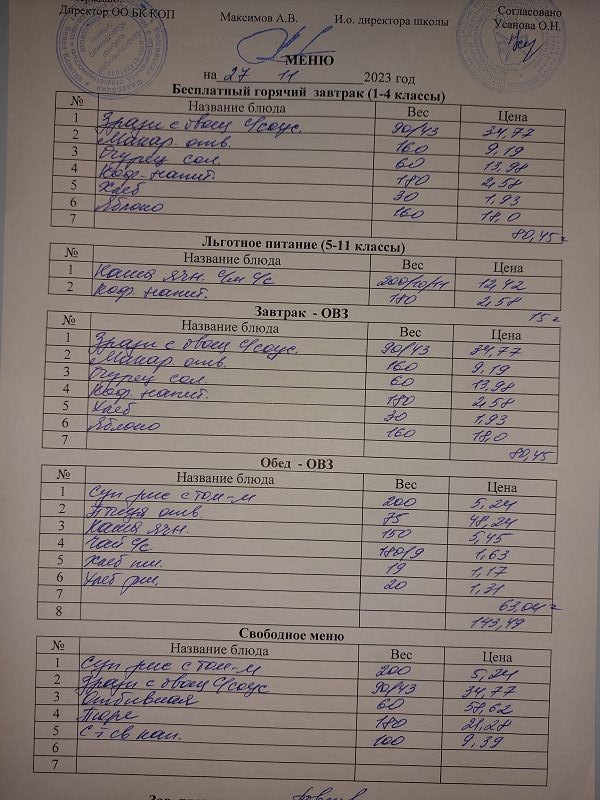 Директор ОО БК КОП Максимов А.В. И.о. директора школы Согласовано
Усанова О.Н.
МЕНЮ
на 27 11 2023 год
Бесплатный горячий завтрак (1-4 классы)
№ Название блюда Вес Цена
1 Зразы с овощ с/соус. 90/43 34,77
2 Макар. отв. 160 9,19
3 Огурец сол. 60 13,98
4 Коф. напит. 180 2,58
5 Хлеб 30 1,93
6 Яблоко 160 18,0
7 80,45
Льготное питание (5-11 классы)
№ Название блюда Вес Цена
1 Каша ячн. с/м с/с 200/10/11 12,42
2 Коф. напит. 180 2,58
15
Завтрак - ОВЗ
№ Название блюда Вес Цена
1 Зразы с овощ с/соус. 90/43 34,77
2 Макар. отв. 160 9,19
3 Огурец сол. 60 13,98
4 Коф. напит. 180 2,58
5 Хлеб 30 1,93
6 Яблоко 160 18,0
7 80,45
Обед - ОВЗ
№ Название блюда Вес Цена
1 Суп рис с том-м 200 5,24
2 Птица отв. 75 48,24
3 Каша ячн. 150 5,45
4 Чай с/с 180/9 1,63
5 Хлеб пш. 19 1,17
6 Хлеб рж. 20 1,31
7 63,04
8 143,49
Свободное меню
№ Название блюда Вес Цена
1 Суп рис с том-м 200 5,24
2 Зразы с овощ с/соус 90/43 34,77
3 Отбивная 60 58,62
4 Пюре 180 21,28
5 С-т св кап. 100 9,39
6
7